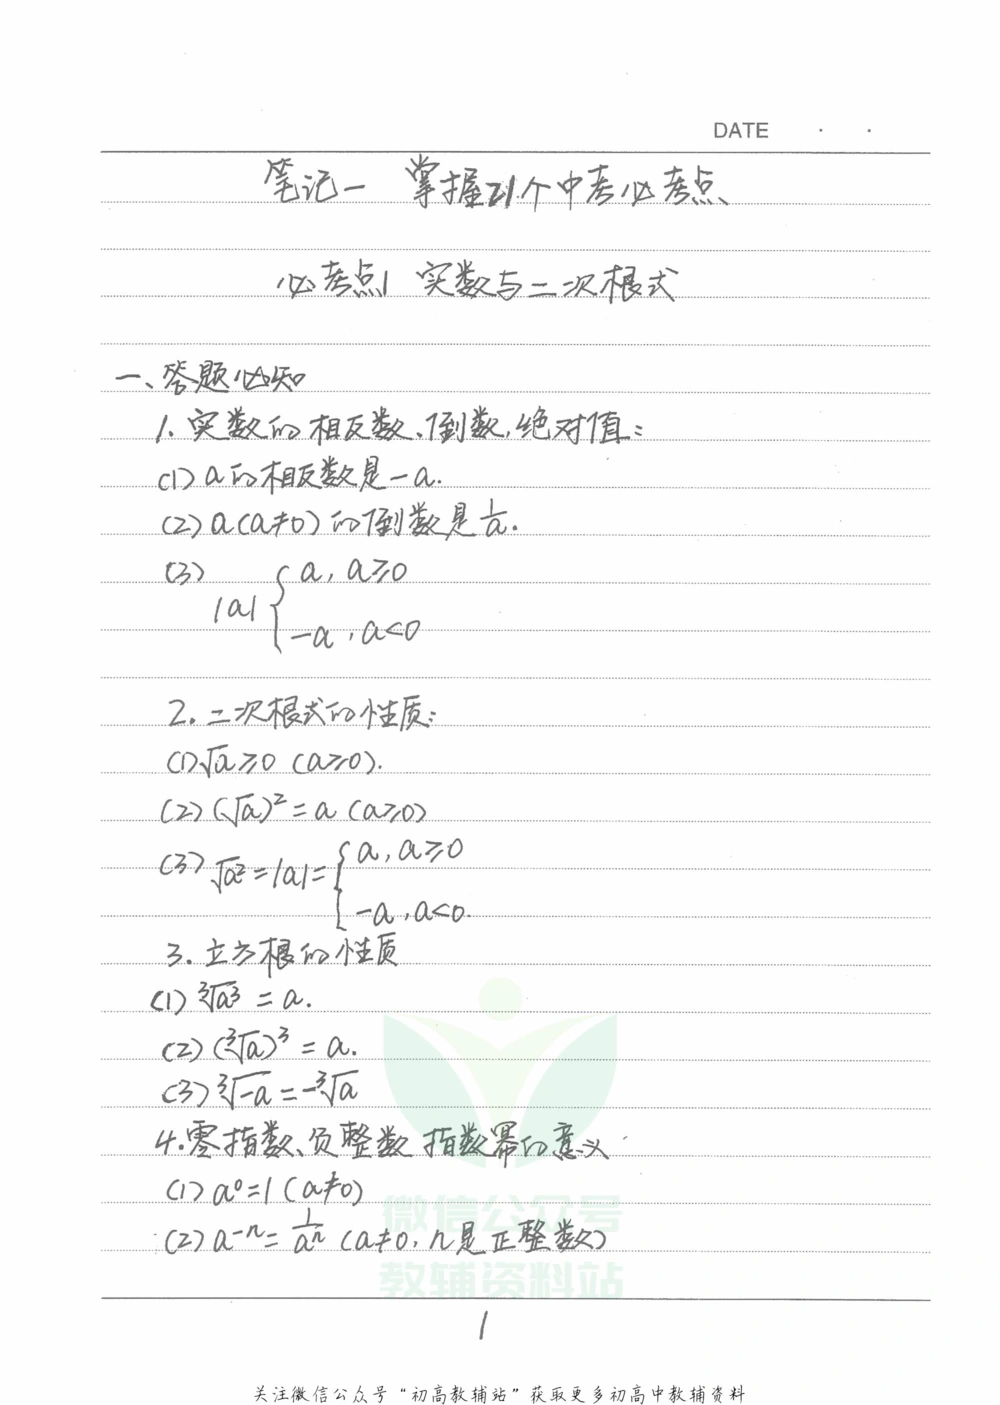 DATE · ·
笔记一 掌握21个中考必考点
必考点1 实数与二次根式
一、答题必知
1. 实数的相反数、倒数,绝对值:
(1) a的相反数是-a.
(2) a(a≠0)的倒数是1/a.
(3) |a| { a, a≥0
-a, a<0
2. 二次根式的性质:
(1) √a≥0 (a≥0).
(2) (√a)²=a (a≥0)
(3) √a²=|a|={ a, a≥0
-a, a<0.
3. 立方根的性质
(1) ³√a³ = a.
(2) (³√a)³ = a.
(3) ³√-a = -³√a
4. 零指数、负整数指数幂的意义
(1) a⁰=1 (a≠0)
(2) a⁻ⁿ=1/aⁿ (a≠0, n是正整数)
微信公众号
教辅资料站
1
关注微信公众号“初高教辅站”获取更多初高中教辅资料